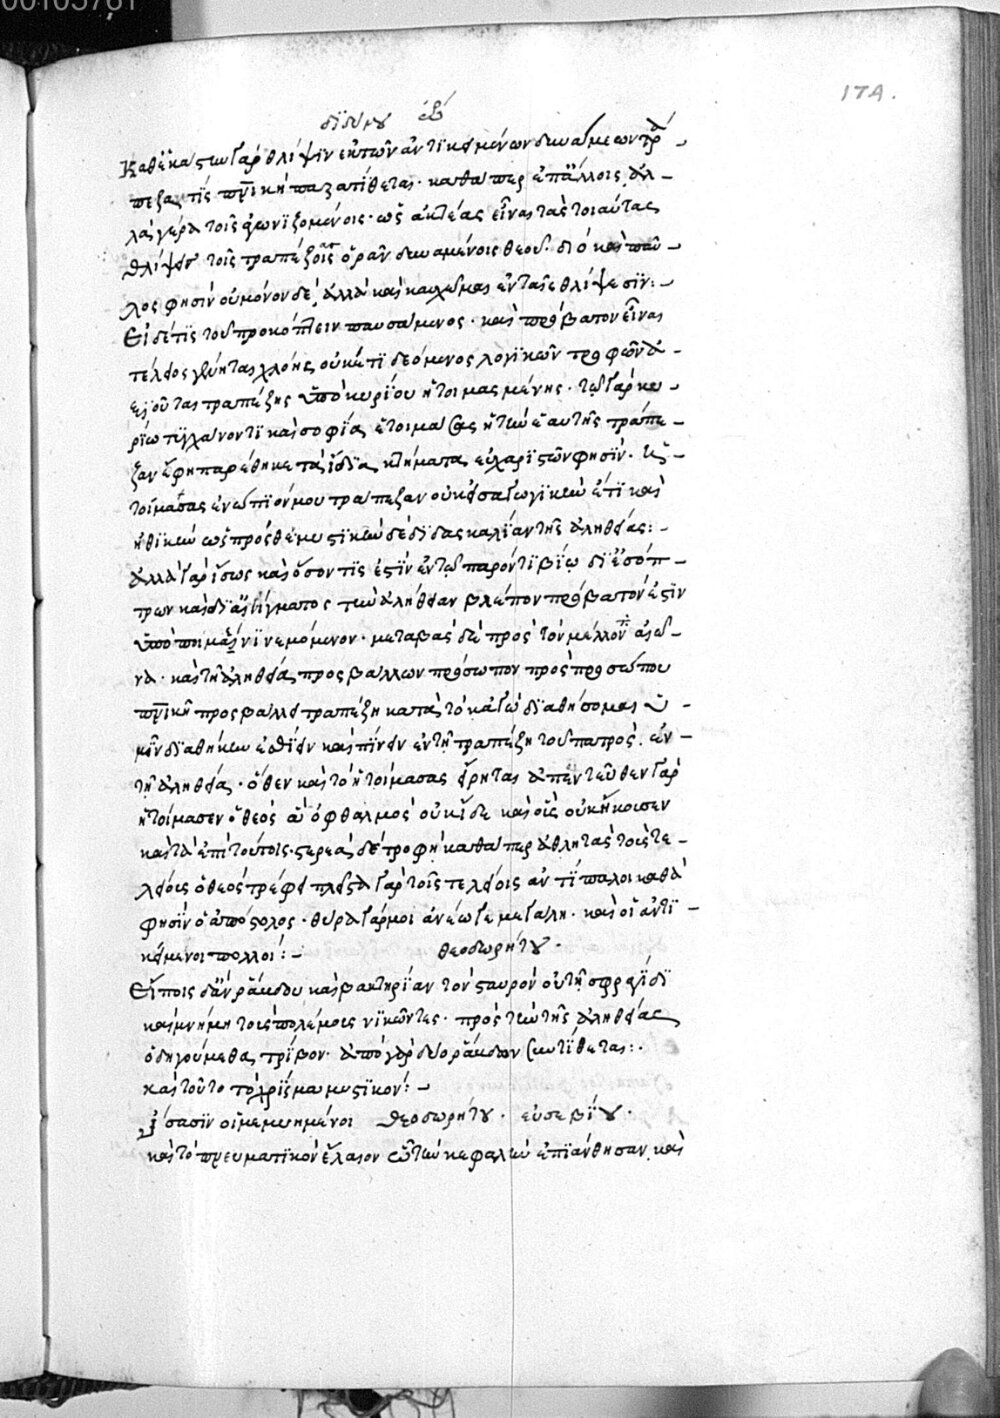 00105761
174.
διδύμου
Καθ' ἑκάστην γὰρ θλίψιν ἐκ τῶν ἀντικειμένων δυνάμεων τρά-
πεζα τίς πνευματικὴ παρατίθεται· καθάπερ ἔπαθλοις, ἀλ-
λὰ γέρα τοῖς ἀγωνιζομένοις· ὡς ἀκτέας εἶναι τὰς τοιαύτας
θλίψεις τοῖς τραπέζας ὁρᾶν δυναμένοις θεοῦ. διὸ καὶ παῦ-
λος φησὶν οὐ μόνον δέ, ἀλλὰ καὶ καυχῶμαι ἐν ταῖς θλίψεσιν:
Εἰ δέ τις τοῦ προκόπτειν παυσάμενος· καὶ πρόβατον εἶναι
τέλειος γένηται χλόης οὐκέτι δεόμενος λογικῶν τροφῶν ἀ-
εὶ οὔσας τραπέζης ὑπὸ κυρίου ἡτοιμασμένης· τῷ γὰρ κυ-
ρίῳ τυγχάνοντι καὶ σοφίᾳ ἑτοιμάσας τὴν ἑαυτῆς τράπε-
ζαν ἐφ' ἣ παρέθηκε τὰ ἴδια κτήματα εὐχαριστῶν φησίν· ἡ-
τοίμασας ἐνώπιόν μου τράπεζαν οὐκ εἰσαγωγικὴν ἔτι καὶ
ἠθικὴν ὡς πρόσθε μυστικὴν δὲ διδασκαλίαν τῆς ἀληθείας:
ἀλλὰ γὰρ ἴσως καὶ ὅσον τίς ἐστὶν ἐν τῷ παρόντι βίῳ δι' ἐσόπ-
τρων καὶ δι' αἰνίγματος τὴν ἀλήθειαν βλέπον πρόβατόν ἐστιν
ὑπὸ ποιμένι νεμόμενον· μεταβὰς δὲ πρὸς τὸν μέλλοντα αἰῶ-
να· καὶ τῇ ἀληθείᾳ προσβάλλων πρόσωπον πρὸς πρόσωπον
πνευματικῇ προσβάλλει τραπέζῃ κατὰ τὸ κἀγὼ διαθήσομαι ὑ-
μῖν διαθήκην ἐσθίειν καὶ πίνειν ἐν τῇ τραπέζῃ τοῦ πατρὸς. ἐν
τῇ ἀληθείᾳ· ὅθεν καὶ τὸ ἡτοίμασας εἴρηται ἀπεντεῦθεν γὰρ
ἡτοίμασεν ὁ θεὸς ἃ ὀφθαλμὸς οὐκ εἶδε καὶ οἷς οὐκ ἤκουσεν
καὶ τὰ ἐπὶ τούτοις· στερεὰ δὲ τροφῇ καθάπερ ἀθλητὰς τοὺς τε-
λείους ὁ θεὸς τρέφει πλεῖστα γὰρ τοῖς τελείοις ἀντίπαλοι καθά
φησὶν ὁ ἀπόστολος· θύρα γάρ μοι ἀνέωγε μεγάλη· καὶ οἱ ἀντι-
κείμενοι πολλοί: θεοδωρήτου.
Εἴποις δ' ἂν ῥάβδον καὶ βακτηρίαν τὸν σταυρόν οὗ τῇ σφραγίδι
καὶ μνήμῃ τοῖς πολέμοις νικῶντες· πρὸς τὴν τῆς ἀληθείας
ὁδηγούμεθα τρίβον· ἀπὸ γὰρ δύο ῥάβδων συντίθεται:
καὶ τοῦτο τὸ χρίσμα μυστικόν:
Ἴσασιν οἱ μεμυημένοι θεοδωρήτου. εὐσεβίου.
καὶ τὸ πνευματικὸν ἔλαιον ᾧ τὴν κεφαλὴν ἐπιάνθησαν, καὶ